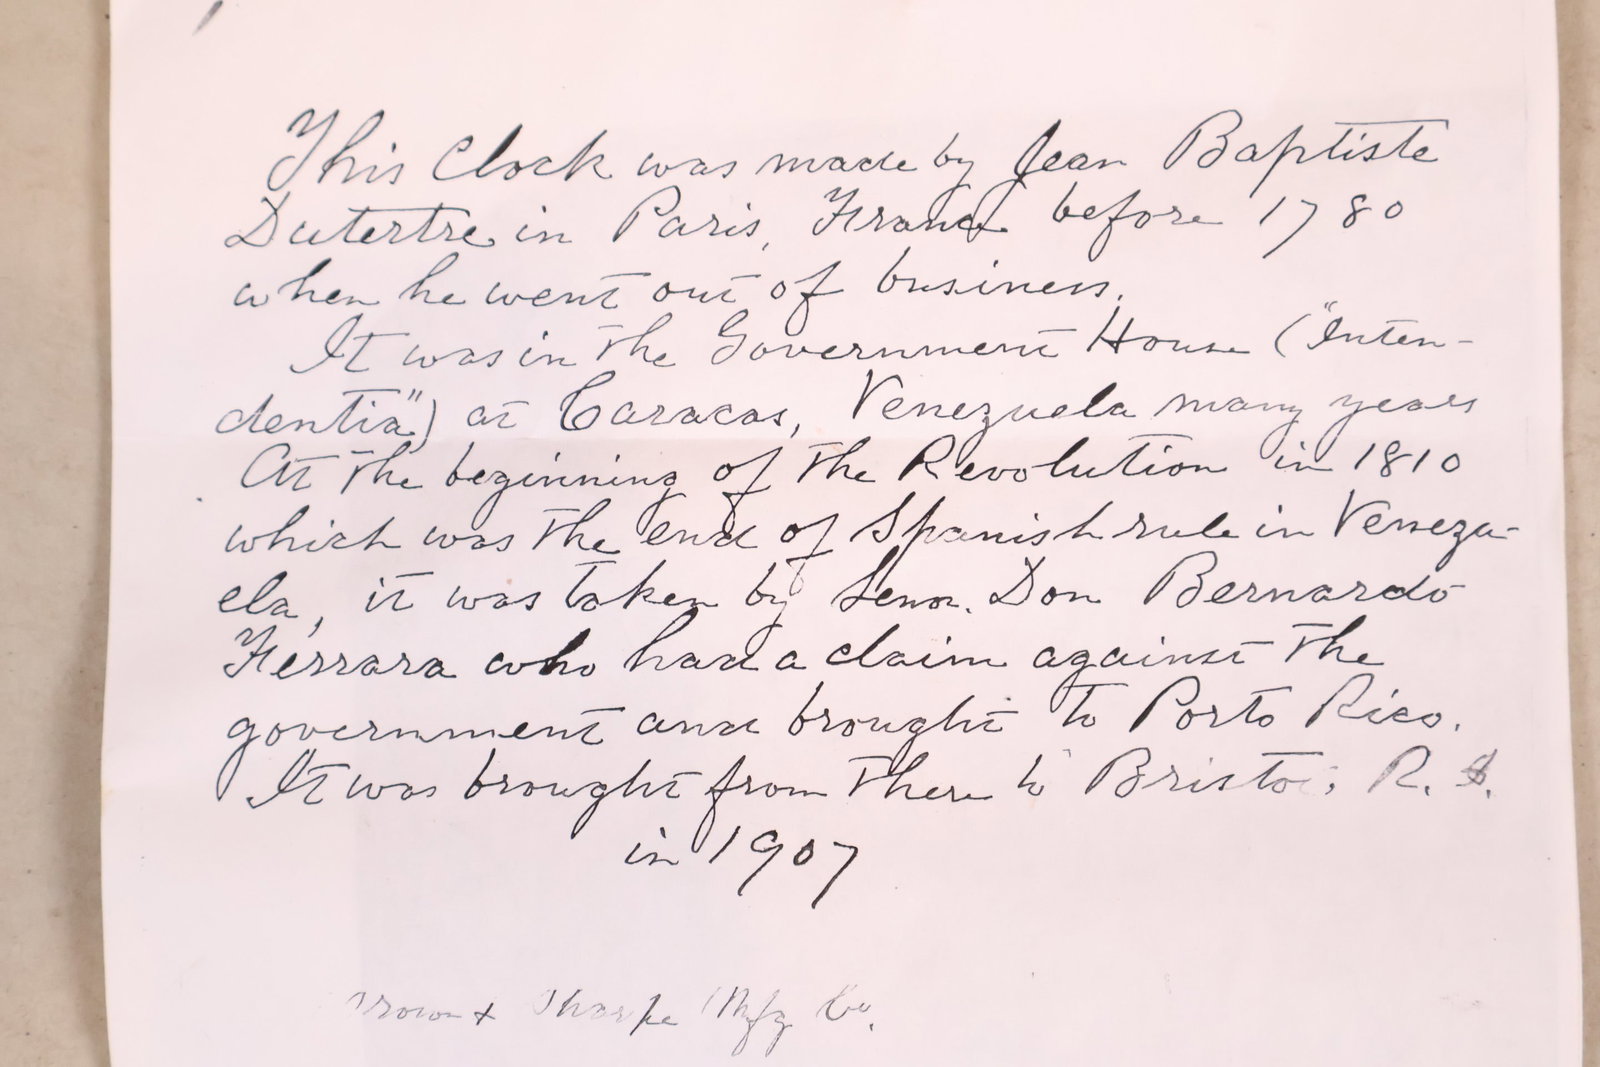 This Clock was made by Jean Baptiste
Dutertre in Paris, France before 1780
when he went out of business.
It was in the Government House ("Inten-
dentia") at Caracas, Venezuela many years
At the beginning of the Revolution in 1810
which was the end of Spanish rule in Venezu-
ela, it was taken by Senr. Don Bernardo
Ferrara who had a claim against the
government and brought to Porto Rico.
It was brought from there to Bristol, R. I.
in 1907
Brown & Sharpe Mfg Co.